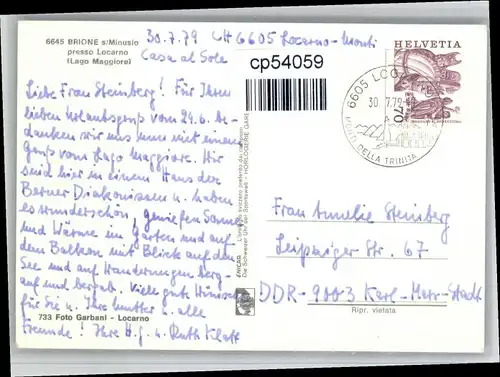 6645 BRIONE s/Minusio
presso Locarno
(Lago Maggiore)
30.7.79 CH 6605 Locarno-Monti
Casa al Sole
cp54059
HELVETIA
70
6605 LOCARNO
30.7.79
DELLA TRINITA
Liebe Frau Steinberg! Für Ihren
lieben Urlaubsgruß vom 29.6. be-
danken wir uns nun mit einem
Gruß vom Lago Maggiore. Wir
sind hier in einem Haus der
Berner Diakonissen u. haben
es wunderschön, genießen Sonne
und Wärme im Garten und auf
dem Balkon mit Blick auf den
See und auf Wanderungen berg-
auf und bergab. Viele gute Wünsche
für Sie u. Ihre Mutter u. alle
Freunde! Ihre H.J. u. Ruth Klatt
ENICAR L'orologio svizzero preferito da milioni
Die Schweizer Uhr der Weltklasse - HORLOGERIE GARE
Frau Amelie Steinberg
Leipziger Str. 67
DDR-9003 Karl-Marx-Stadt
733 Foto Garbani - Locarno
Ripr. vietata